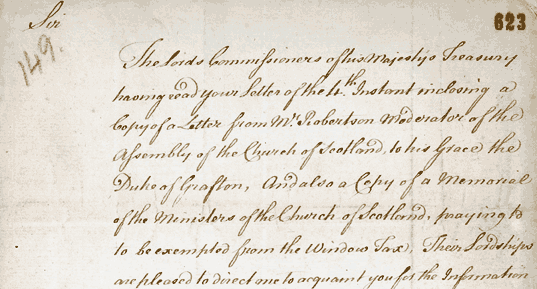 Sir
623
149.
The Lords Commissioners of his Majesty's Treasury
having read your Letter of the 4th. Instant inclosing a
Copy of a Letter from Mr. Robertson Moderator of the
Assembly of the Church of Scotland, to his Grace the
Duke of Grafton, And also a Copy of a Memorial
of the Ministers of the Church of Scotland, praying to
to be exempted from the Window Tax, Their Lordships
are pleased to direct me to acquaint you for the Information